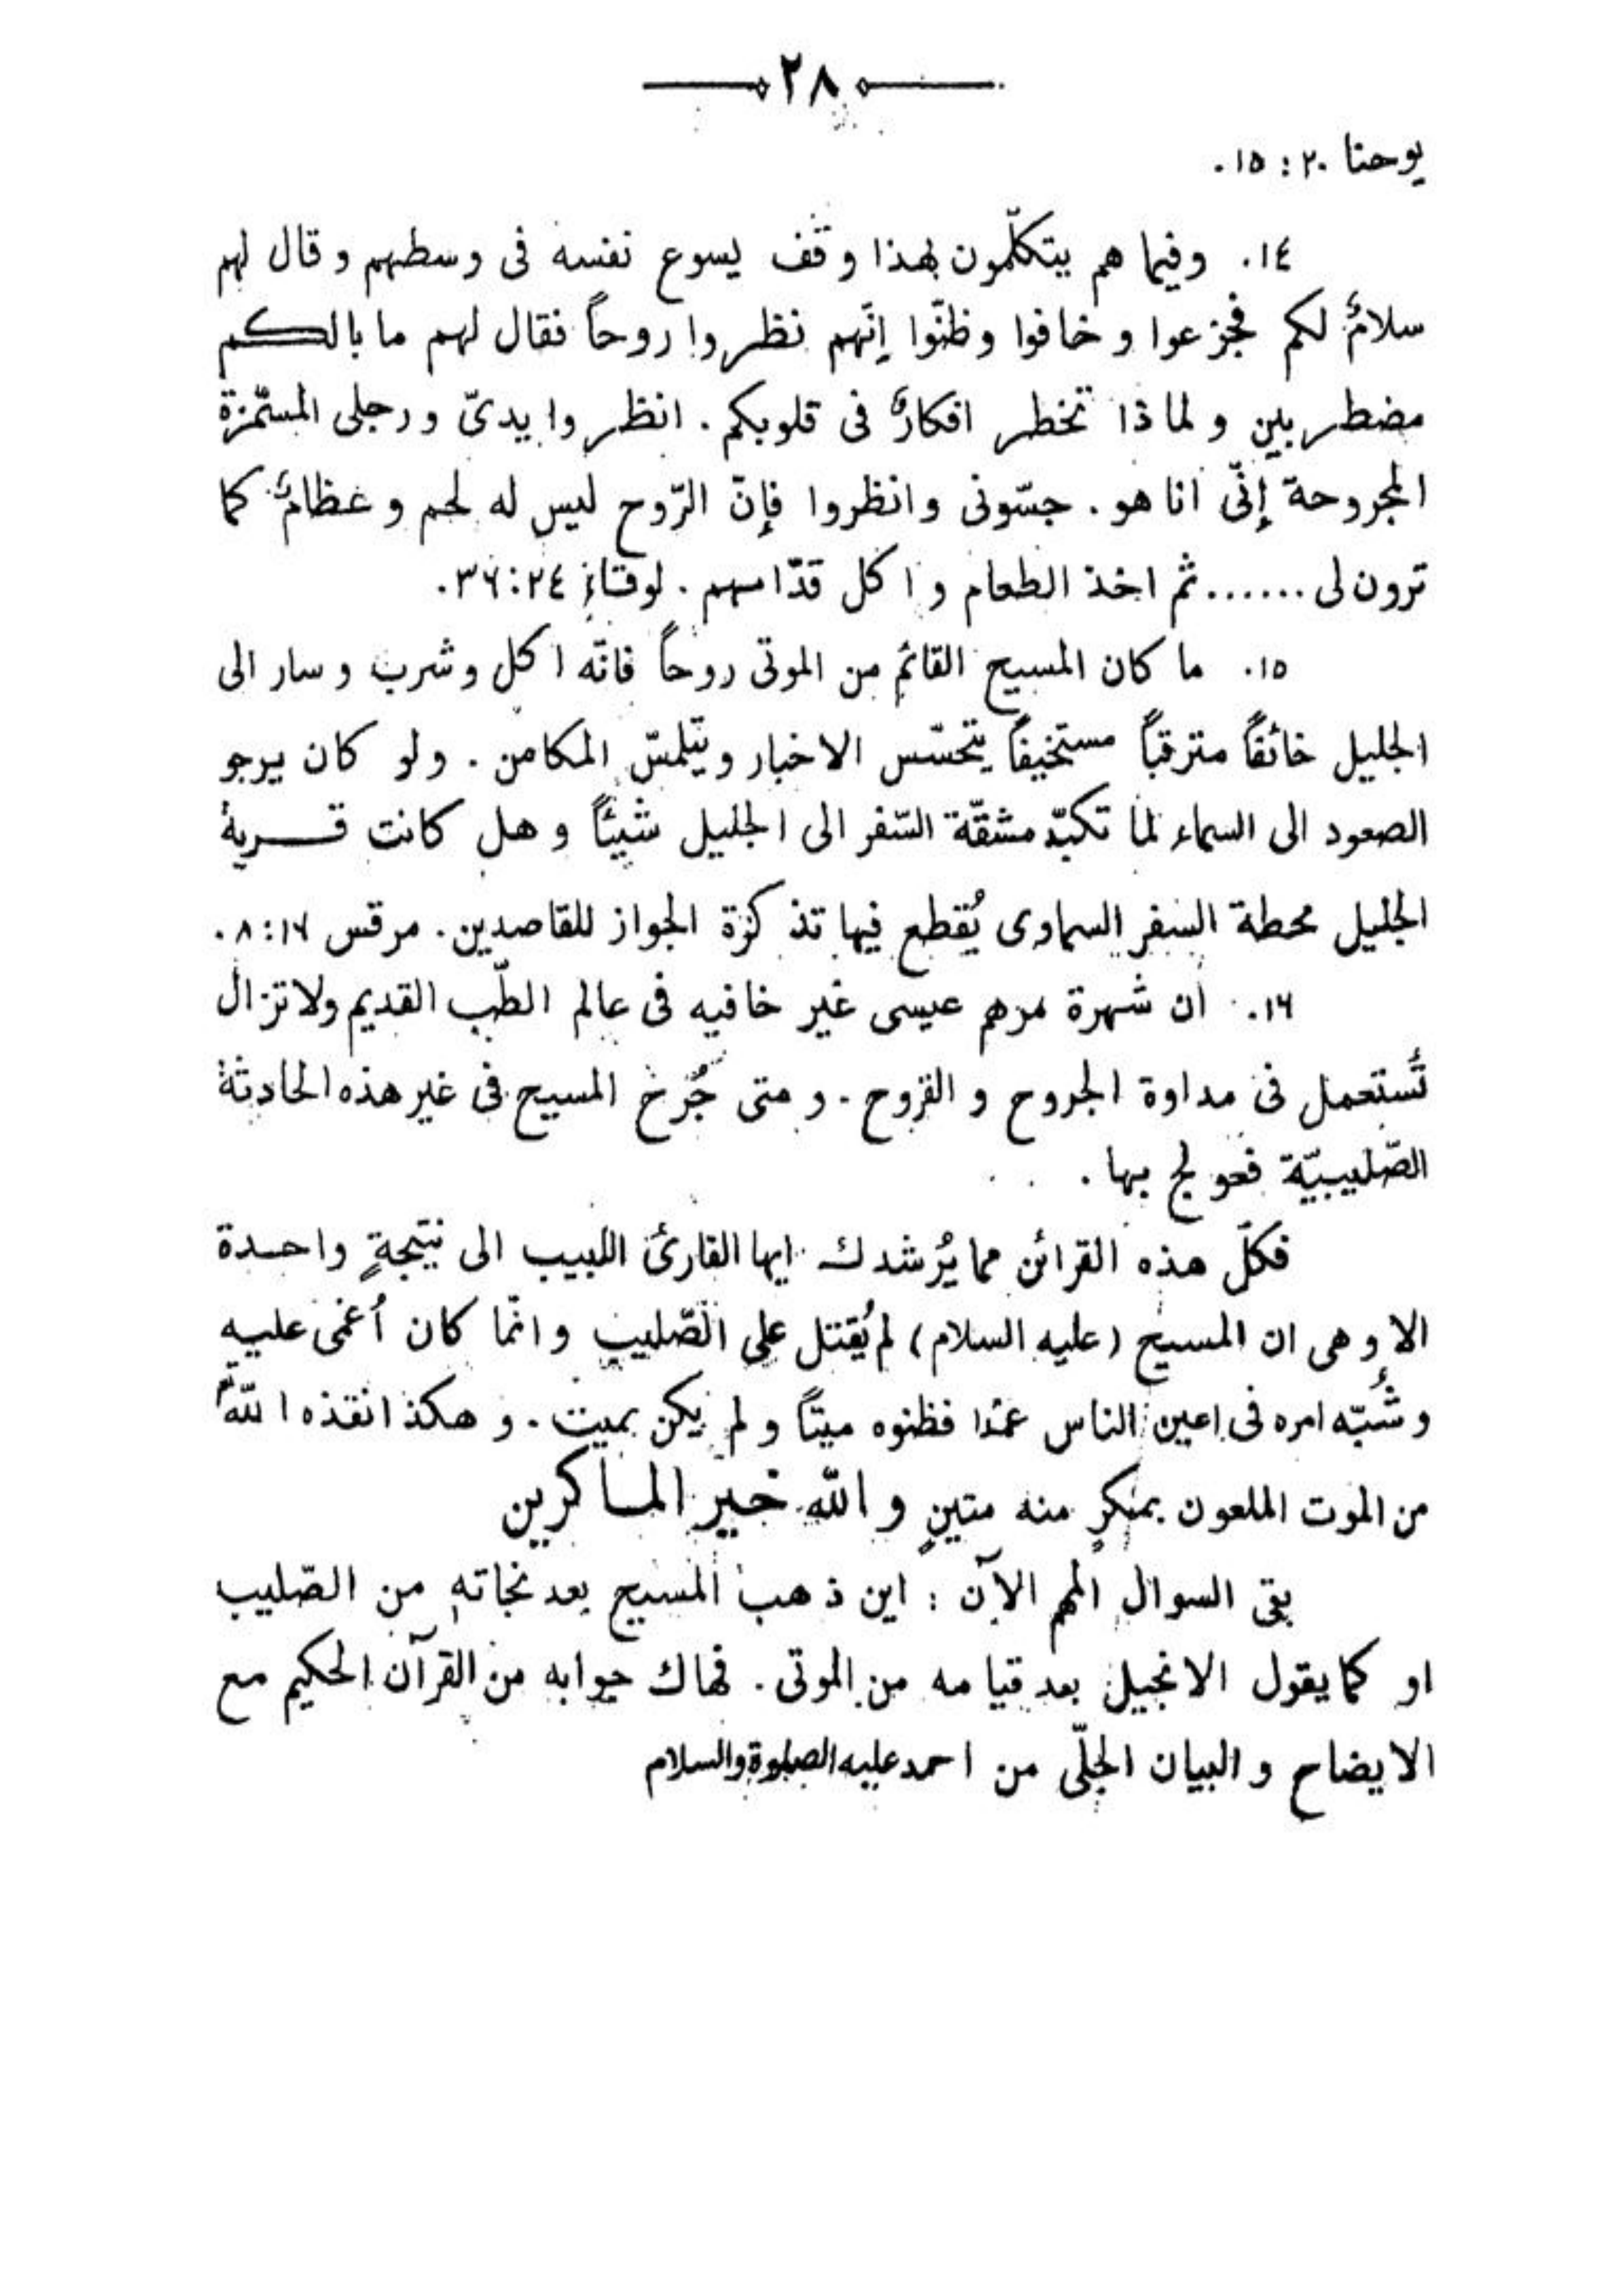 ٢٨
يوحنا ٢٠ : ١٥.
١٤. وفيما هم يتكلّمون بهذا وقف يسوع نفسه فى وسطهم وقال لهم
سلامٌ لكم فجزعوا و خافوا وظنّوا إنّهم نظروا روحاً فقال لهم ما بالكم
مضطربين و لماذا تخطر افكارٌ فى قلوبكم . انظروا يدىّ ورجلى
المجروحة إنّى انا هو . جسّونى وانظروا فإنّ الرّوح ليس له لحم و عظامٌ كما
ترون لى ...... ثم اخذ الطعام و اكل قدّامهم . لوقا ٢٤:٣٦.
١٥. ما كان المسيح القائم من الموتى روحاً فانّه اكل وشرب وسار الى
الجليل خائفاً مترقباً مستخيفاً يتحسّس الاخبار ويتلمسّ المكامن . ولو كان يرجو
الصعود الى السماء لما تكبّد مشقّة السّفر الى الجليل شيئاً و هل كانت قرية
الجليل محطة السفر السماوى يُقطع فيها تذكرة الجواز للقاصدين . مرقس ١٦:٨.
١٦. ان شهرة مرهم عيسى غير خافيه فى عالم الطّب القديم ولاتزال
تُستعمل فى مداوة الجروح و القروح . و متى جُرح المسيح فى غير هذه الحادثة
الصّليبيّة فعولج بها .
فكلّ هذه القرائن مما يُرشدك ايها القارئ اللبيب الى نتيجةٍ واحدة
الا وهى ان المسيح (عليه السلام) لم يُقتل على الصّليب و انّما كان أُغمى عليه
و شُبّه امره فى اعين الناس عمدا فظنوه ميتاً و لم يكن بميت . و هكذا انقذه اللّٰه
من الموت الملعون بمكرٍ منه متينٍ و اللّٰه خير الماكرين
بقى السوال المهم الآن : اين ذهب المسيح بعد نجاته من الصّليب
او كما يقول الانجيل بعد قيامه من الموتى . فهاك جوابه من القرآن الحكيم مع
الايضاح و البيان الجلّى من احمد عليه الصلوة والسلام